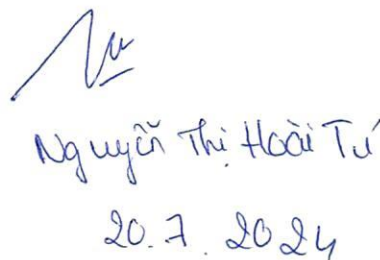 Nguyễn Thị Hoài Tú
20.7.2024